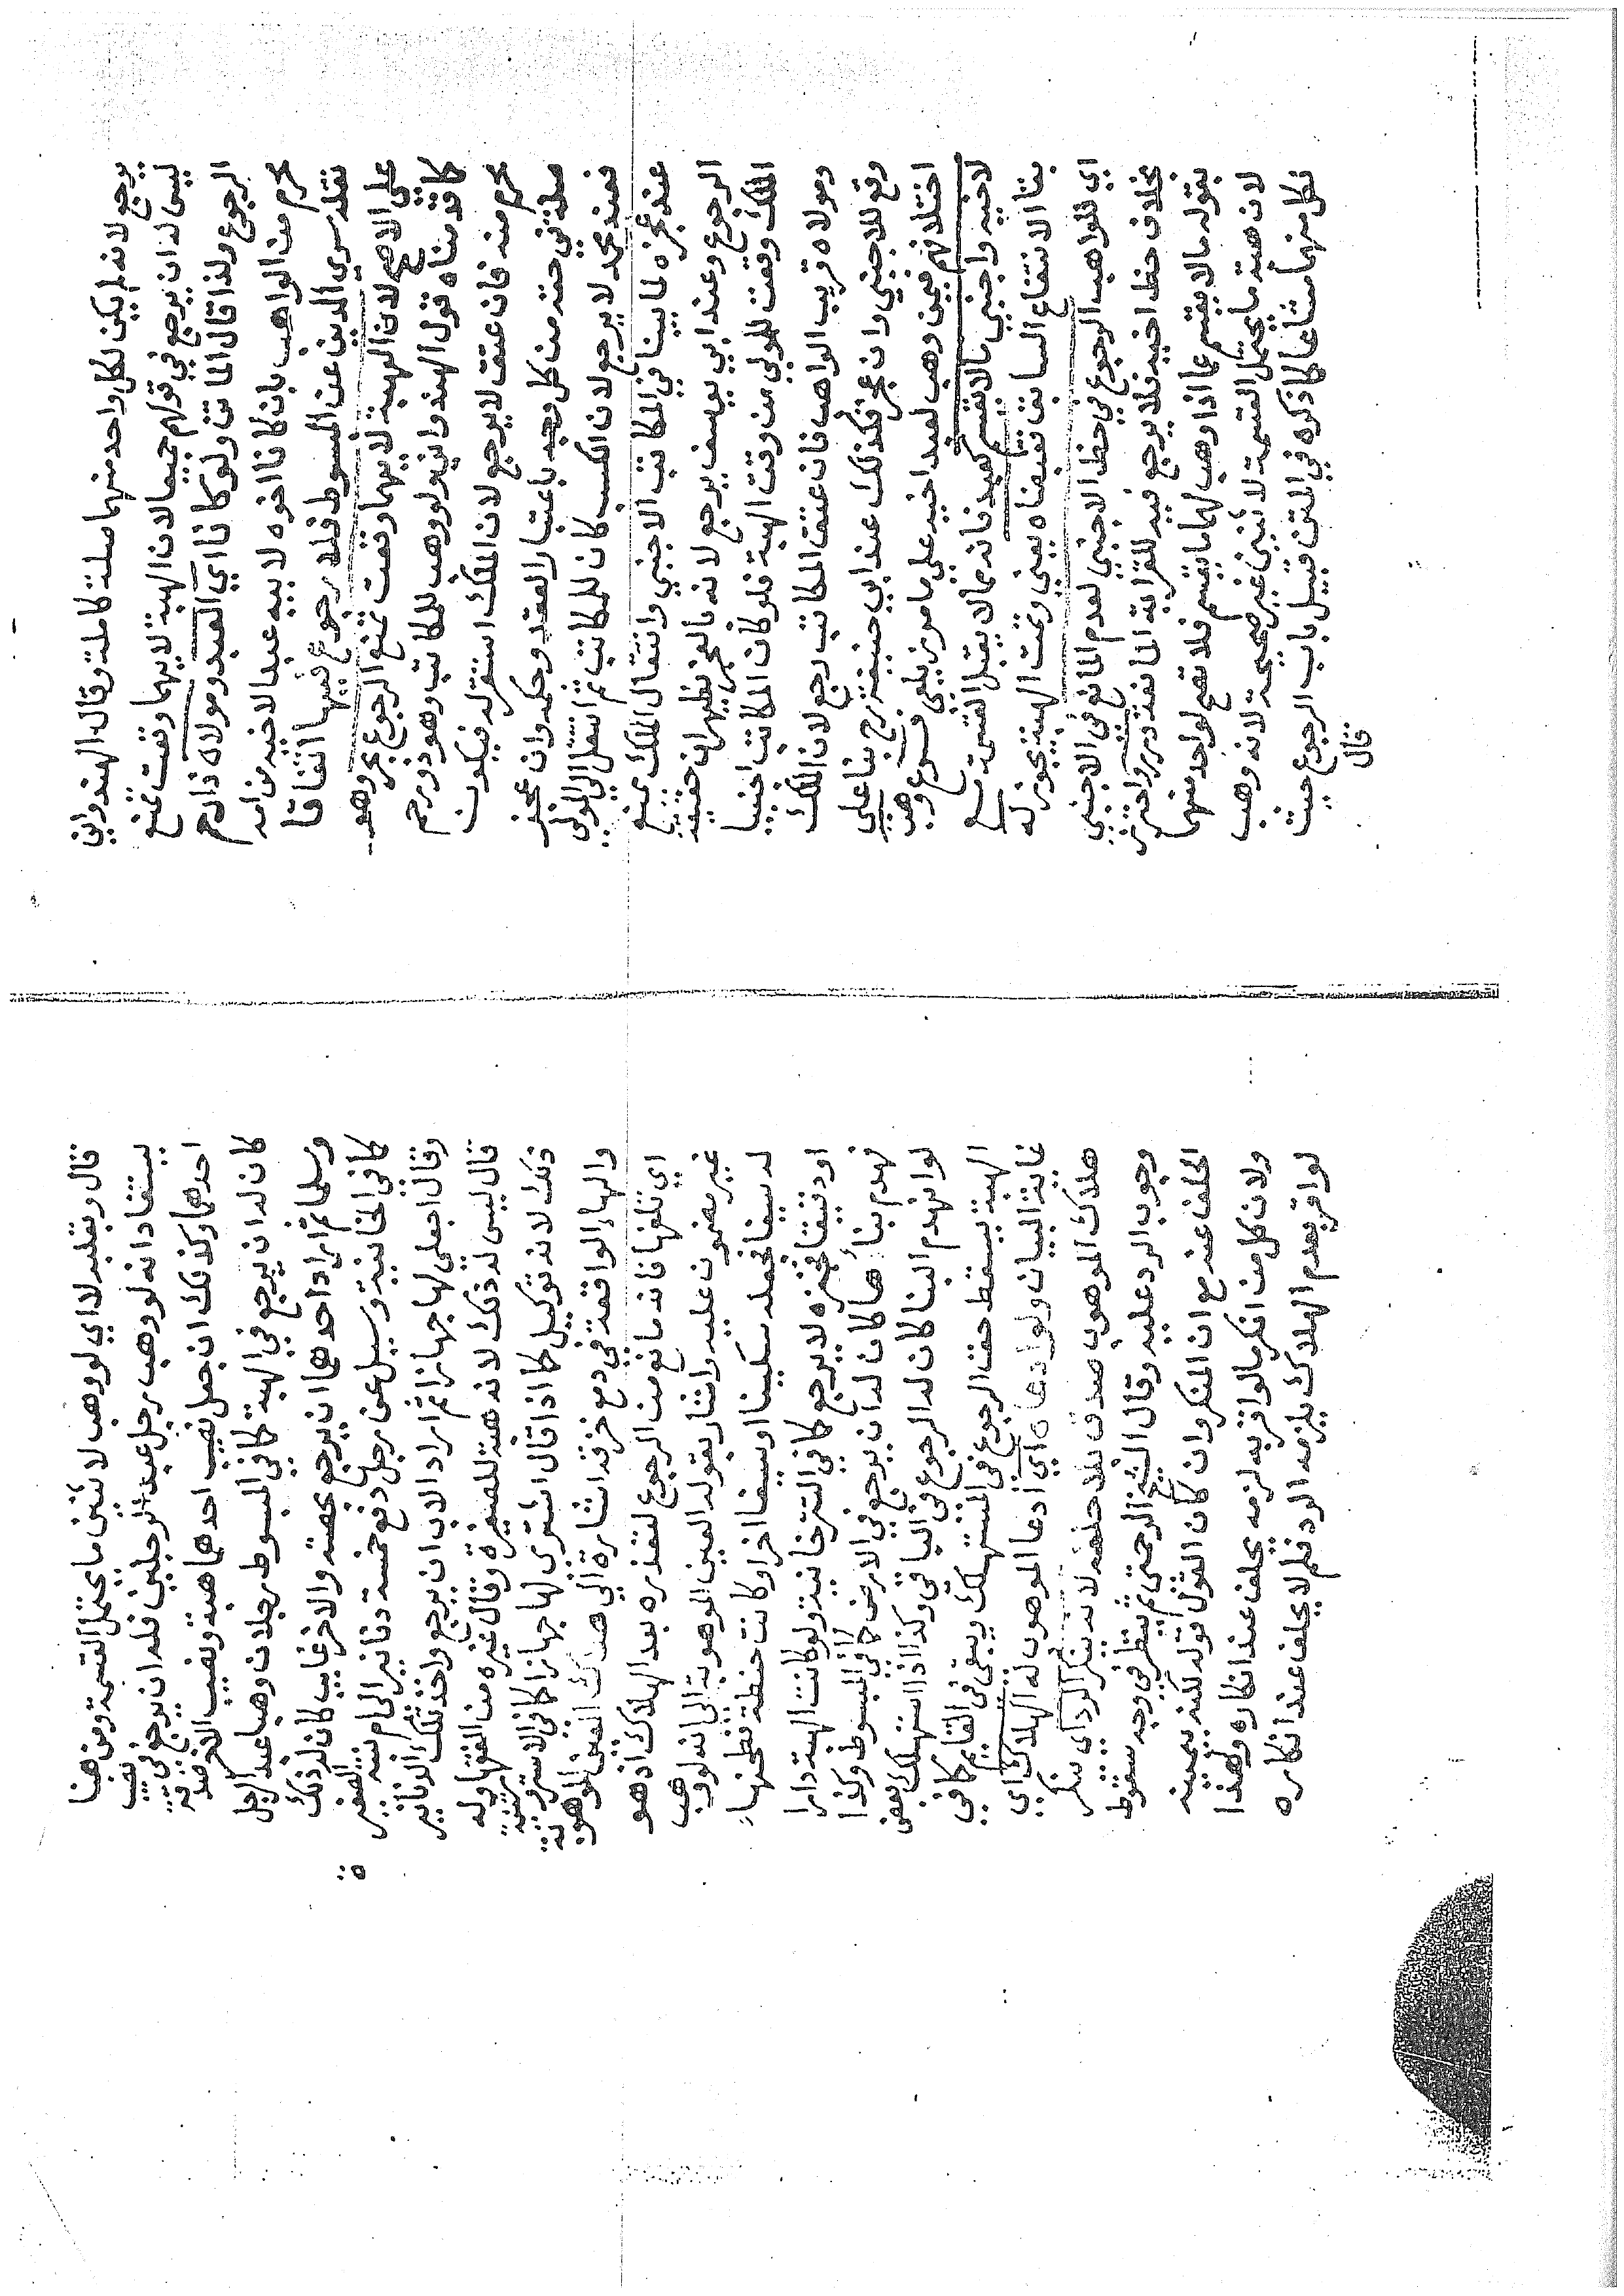 يرجع لانه لم يكن لكل واحد منهما صلة كاملة وقال الهندواني
ليس له ان يرجع في قولهم جميعا لان الهبة لايهما وقعت تمنع
الرجوع ولذا قال الماتن ولو كانا اي العبد ومولاه ذا رحم
محرم من الواهب بان كانا اخوه لابيه عبدا لاخيه من امه
نقله سري الدين عن المبسوط فلا رجوع فيها اتفاقا
على الاصح لان الهبة لايهما وقعت تمنع الرجوع بحر وهو
كما قدمناه قول الهندواني ولو وهب للمكاتب وهو ذو رحم
محرم منه فان عتق لا يرجع لان الملك استقر له فيكون
صلة في حقه من كل وجه باعتبار العقد وحكمه وان عجز
فعند محمد لا يرجع لان الكسب كان للمكاتب ثم انتقل الى المولى
عند عجزه لما بينا في المكاتب الاجنبي وانتقال الملك يمنع
الرجوع وعند ابي يوسف يرجع لانه بالعجز يظهر ان حقيقة
الملك وقعت للمولى من وقت الهبة فلو كان المكاتب اجنبيا
ومولاه قريب الواهب فان عتق المكاتب رجع لان الملك
وقع للاجنبي وان عجز فكذلك عند ابي حنيفة رح بنا على
اختلافهم فيمن وهب لعبد اخيه على ما مر زيلعي فرع وهب
لاخيه واجنبي ما لا يقسم كعبد فانه مما لا يقبل القسمة مع
بقا الانتفاع السابق فقبضاه يعني وتمت الهبة يجوز له
اي للواهب الرجوع في حظ الاجنبي لعدم المانع في الاجنبي
بخلاف حظ اخيه فلا يرجع فيه للقرابة المانعة درر واحترز
بقوله ما لا يقسم عما اذا وهب لهما ما يقسم فلا تصح لواحد منهما
لان هبة ما يحتمل القسمة لاثنين غير صحيحة لانه وهب
لكل منهما مشاعا كما ذكره في المتن قبيل باب الرجوع حيث
قال
قال وبقلبه لا اي لو وهب لاثنين ما يحتمل القسمة ومن هنا
يستفاد انه لو وهب رجل عبدا لرجلين فله ان يرجع في نصيب
احدهما وكذلك ان جعل نصيب احدهما هبة ونصيب الاخر صدقة
كان له ان يرجع في الهبة كما في المبسوط رجلان وهبا عبدا لرجل
وسلما ثم اراد احدهما ان يرجع بحصته والاخر غايب كان له ذلك
كما في الخانية وسيل عن رجل دفع خمسة دنانير الى ام بنته الصغير
وقال اجعلي لها جهازا ثم اراد الاب ان يرجع واخذ تلك الدنانير
قال ليس له ذلك لانه هبة للصغيرة وقال غيره من الفقها وله
ذلك لانه توكيل كما اذا قال اشتري لها جهازا كما في الاستروشنية
والهاء الواقعة في دمع خزقه اشارة الى هلاك العين الموهوبة
اي تلفها فانه مانع من الرجوع لتعذره بعد الهلاك اذ هو
غير مضمون عليه واشار بقوله العين الموهوبة الى انه لو وهب
له سيفا فجعله سكينا او سيفا اخر او كانت حنطة فطحنها
او دقيقا فخبزه لا يرجع كما في التترخانية ولو كانت الهبة دارا
فهدم بناءها كان له ان يرجع في الارض كما في المبسوط وكذا
لو انهدم البنا كان له الرجوع في الباقي وكذا اذا استهلك بعض
الهبة يسقط حق الرجوع في المستهلك ويبقى في القايم كما في
غاية البيان ولو ادعاه اي ادعا الموهوب له الهلاك اي
هلاك الموهوب صدق بلا حلف لانه ينكر الرد اي ينكر
وجوب الرد عليه وقال الشيخ الرحمتي ثم ينظر في وجه سقوط
الحلف عنه مع ان المنكر وان كان القول قوله لكنه بيمينه
ولان كل من انكر ما لو اقر به لزمه يحلف عند انكاره وهذا
لو اقر بعدم الهلاك يلزمه الرد فلم لا يحلف عند انكاره